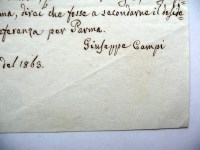 ma, dirai che fosse a secondarne il
eferenza per Parma.
Giuseppe Campi
del 1863.